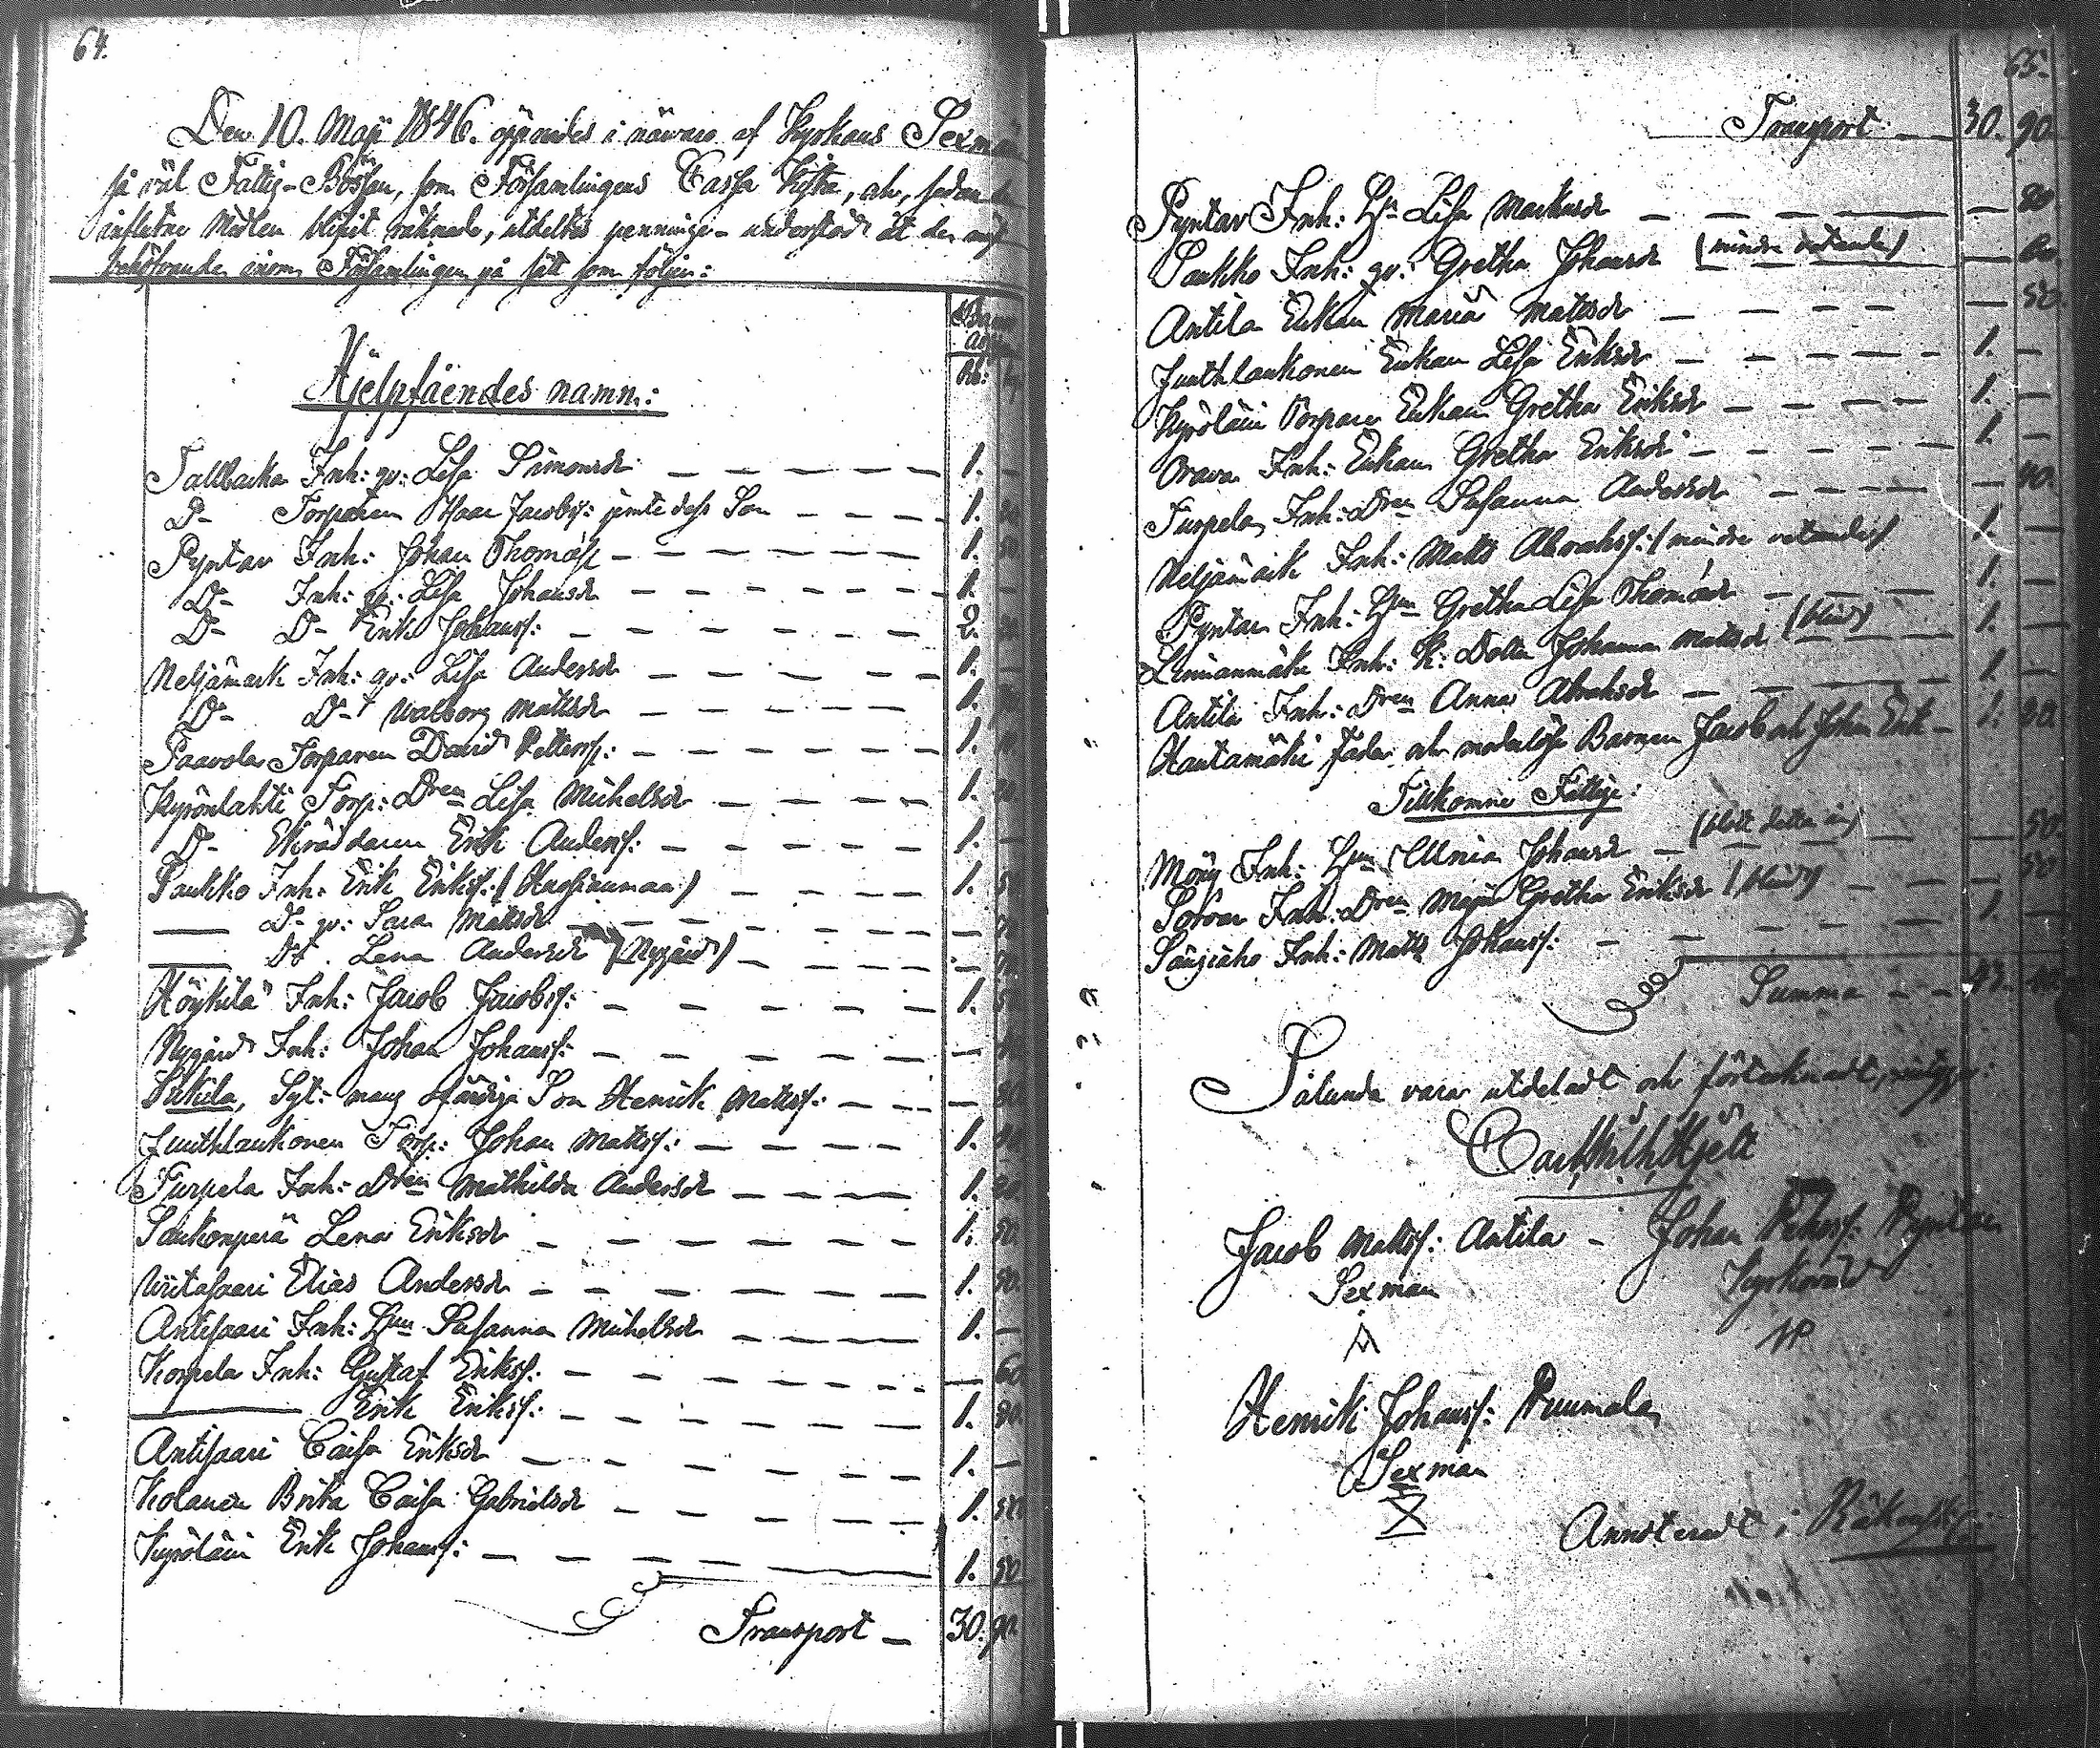 64.
Den 10. Maji 1846. öppnades i närvaro af Kyrkans Sexmän
så väl Fattig-Bössan, som Församlingens Cassa Kista, och, sedan de
influtne Medlen blifvit räknade, utdeltes penninge-understöd åt de mäst
behöfvande inom Församlingen på sätt som följer:
Hjelpfåendes namn:
Tallbacka Inh: gv: Lisa Simonsdr 1. —
D- Torparen Isaac Jacobss: jemte dess Son 1.
Pyntar Inh: Johan Thomass 1. 50
D- Inh: gv: Lisa Johansdr 1. —
D- D- Erik Johanss: 2.
Neljämark Inh: gv: Lisa Andersdr 1. —
D- D- Walborg Mattsdr 1.
Paavola Torparen David Petterss: 1.
Kyrönlahti Torp: Dren Lisa Michelsdr 1.
D- Skräddaren Erik Anderss: 1. —
Paukko Inh: Erik Erikss: 1. 50
— D- gv: Sara Mattsdr —
— D- Lena Andersdr (Nygård) —
Höykilä Inh: Jacob Jacobss: 1. 50
Nygård Inh: Johan Johanss: —
Sikila, Syt: mans ofärdige Son Henrik Mattss: — 80
Juuthlaukonen Torp: Johan Mattss: 1.
Turpela Inh: Dren Mathilda Andersdr 1. 20
Saukonperä Lena Eriksdr 1. 50.
Wiitasaari Elias Andersdr 1. 50.
Antisaari Inh: Hun Susanna Michelsdr 1. —
Korpela Inh: Gustaf Erikss: — 60
— Erik Erikss: 1. 20.
Antisaari Caisa Eriksdr 1. —
Kolanen Brita Caisa Gabrielsdr 1. 50
Kyröläin Erik Johanss: 1. 50
Transport — 30. 90.
65.
Transport — 30. 90.
Pyntar Inh: Hun Lisa Markusdr — 80
Paukko Inh: gv: Gretha Johansdr (mindre vetande) — 60.
Antila Enkan Maria Mattsdr — 50.
Juuthlaukonen Enkan Lisa Eriksdr 1. —
Kyröläin Torpare Enkan Gretha Eriksdr 1. —
Orava Inh: Enkan Gretha Eriksdr 1. —
Turpela Inh: Dren Susanna Andersdr — 40.
Neljämark Inh: Matts Abrahss: (mindre vetande) 1. —
Pyntar Inh: Hun Gretha Lisa Thomasdr 1. —
Linnanmäki Inh: Dotter Johanna Mattsdr (blind) 1. —
Antila Inh: Dren Anna Abrahsdr 1. —
Hautamäki fader och moderlösa Barnen Jacob och Johan Erik 1. 80.
Tillkomne Fattige:
Möuy Inh: Hun Johansdr (blott detta år) — 50.
Inh: Dren Maja Gretha Eriksdr (blind) — 50
Inh: Matts Johanss: 1. —
Summa
Sålunda vara utdeladt och förtecknadt, intygar:
Carl Wilh: Hjelt
Jacob Mattss: Antila — Johan Pyntär
Sexman Kyrkovärd
Henrik Johanss: Ruumala
Sexman
Annoteradt i